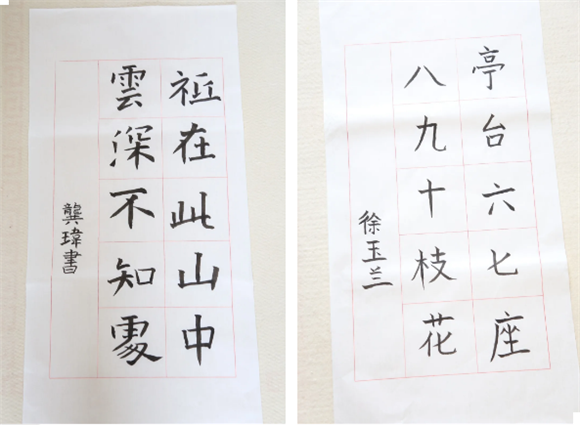 祗在此山中
雲深不知處
龔瑋書
亭台六七座
八九十枝花
徐玉兰